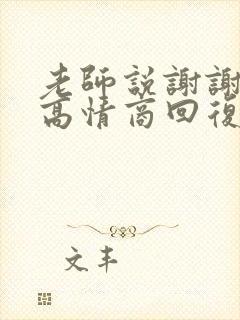 老師説謝謝
高情商回復
文丰